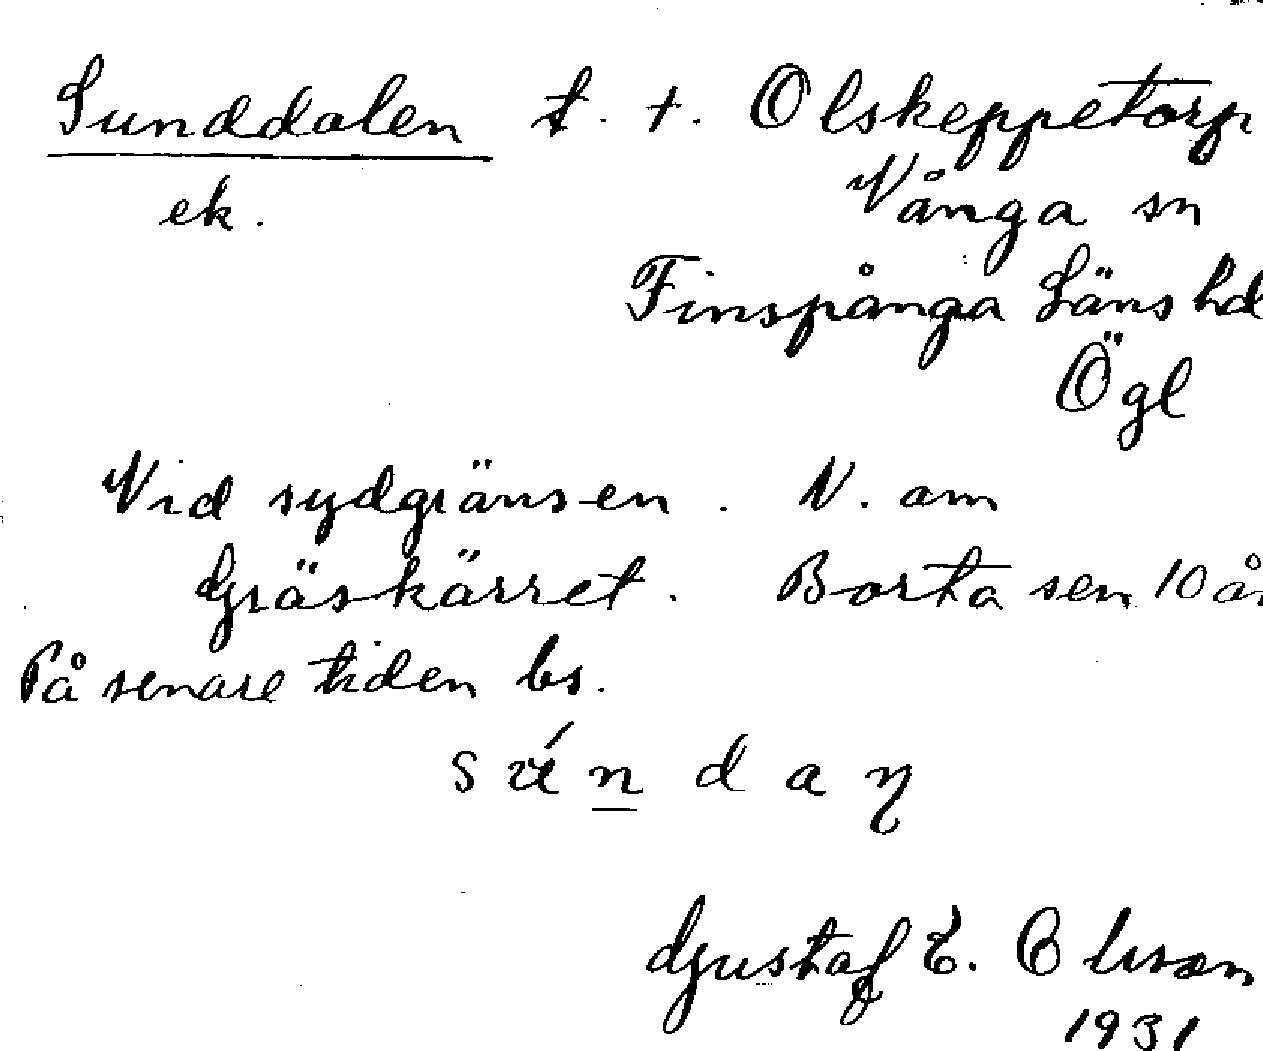 Sunddalen t. t. Olskeppetorp
ek. Vånga sn
Finspånga Läns hd
Ögl
Vid sydgränsen. N. om
Gräskärret. Borta sen 10 år
På senare tiden bs.
Gustaf E. Olsson
1931